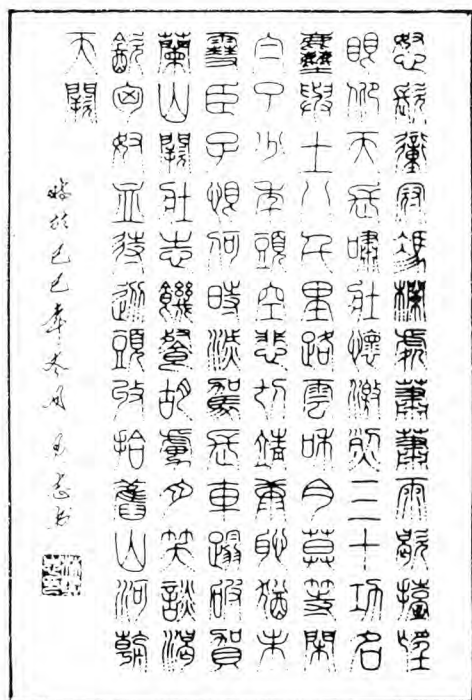 怒髮衝冠馮欄處蕭蕭雨歇擡望
眼仰天長嘯壯懷激烈三十功名
塵與土八千里路雲和月莫等閑
白了少年頭空悲切靖康恥猶未
雪臣子恨何時滅駕長車踏破賀
蘭山闕壯志饑餐胡虜肉笑談渴
飲匈奴血待從頭收拾舊山河朝
天闕
於己巳年冬月